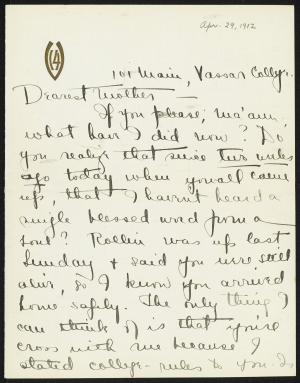 Apr. 29, 1912
14
101 Main, Vassar College.
Dearest Mother
If you please, ma'am,
what have I did now? Do
you realize that since two weeks
ago today when you all came
up, that I haven't heard a
single blessed word from a
soul? Rollin was up last
Sunday & said you were still
alive, so I know you arrived
home safely. The only thing I
can think of is that you're
cross with me because I
stated college-rules to you. Is